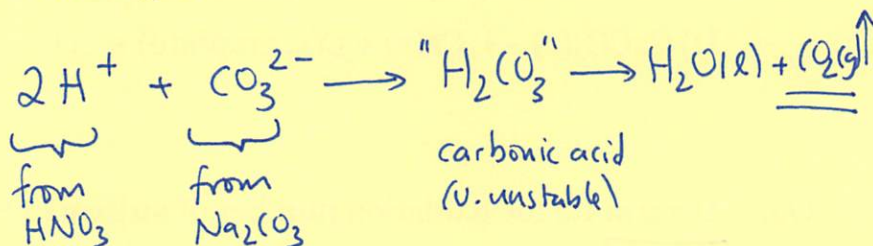 2H⁺ + CO₃²⁻ ⟶ "H₂CO₃" ⟶ H₂O(l) + CO₂(g)↑
from HNO₃
from Na₂CO₃
carbonic acid
(v. unstable)